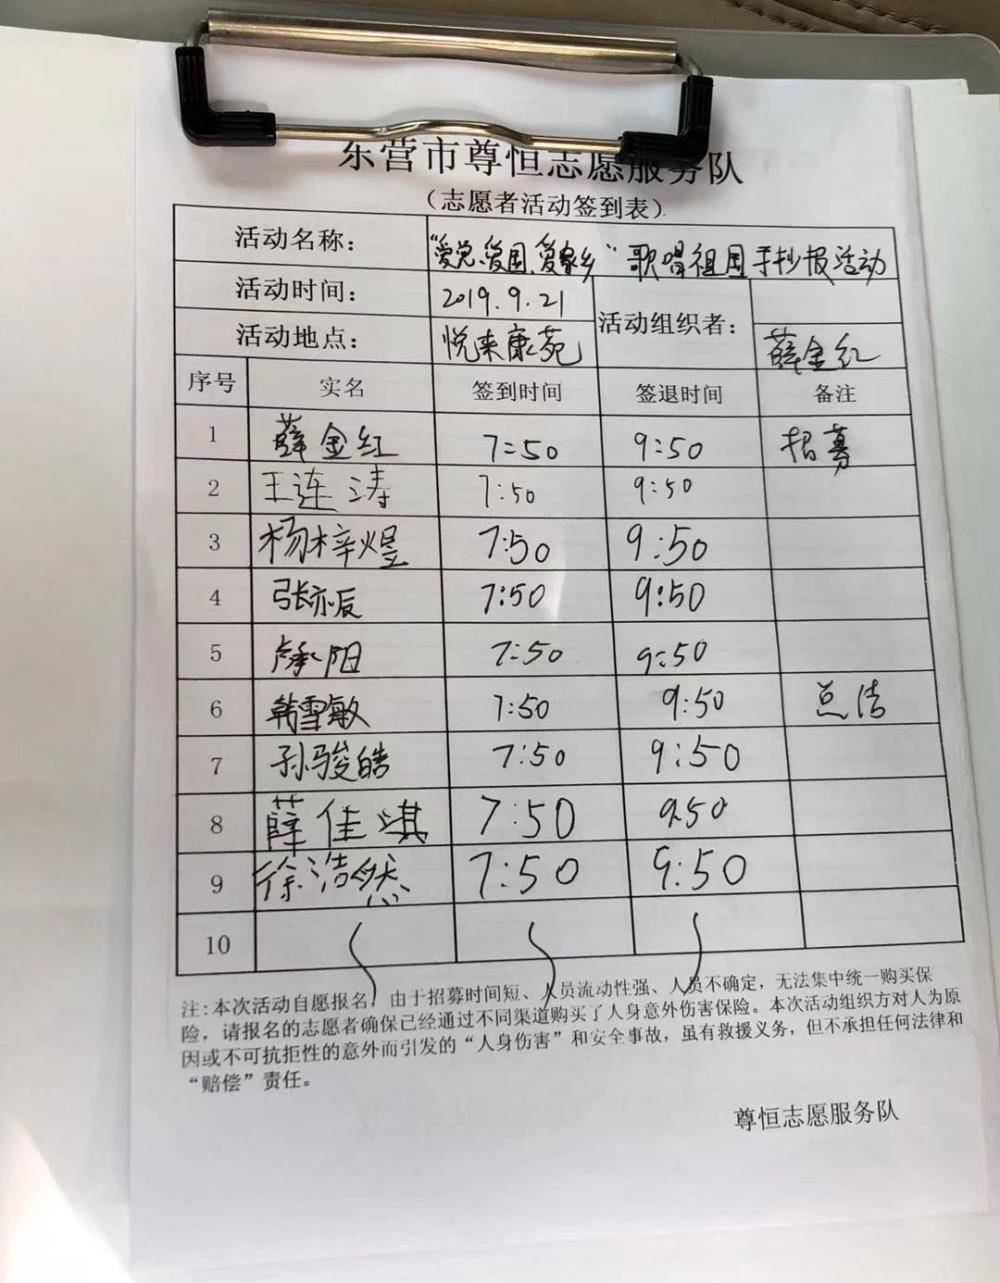 东营市尊恒志愿服务队
（志愿者活动签到表）
活动名称： “爱党、爱国、爱家乡”歌唱祖国手抄报活动
活动时间： 2019.9.21 活动组织者： 薛金红
活动地点： 悦来康苑
序号 实名 签到时间 签退时间 备注
1 薛金红 7:50 9:50 招募
2 王连涛 7:50 9:50
3 杨梓煜 7:50 9:50
4 张亦辰 7:50 9:50
5 卢承阳 7:50 9:50
6 韩雪敏 7:50 9:50 总结
7 孙骏皓 7:50 9:50
8 薛佳淇 7:50 9:50
9 徐浩然 7:50 9:50
10
注：本次活动自愿报名，由于招募时间短、人员流动性强、人员不确定，无法集中统一购买保
险，请报名的志愿者确保已经通过不同渠道购买了人身意外伤害保险。本次活动组织方对人为原
因或不可抗拒性的意外而引发的“人身伤害”和安全事故，虽有救援义务，但不承担任何法律和
“赔偿”责任。
尊恒志愿服务队